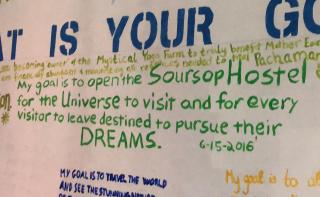 AT IS YOUR GO
becoming owner of the Mystical Yoga Farm to truly benefit Mother Ear
financial abundance needed to heal Pachamam
My goal is to open the Soursop Hostel
for the Universe to visit and for every
visitor to leave destined to pursue their
DREAMS. 6-15-2016
MY GOAL IS TO TRAVEL THE WORLD
AND SEE THE STUNNING
My goal is to al